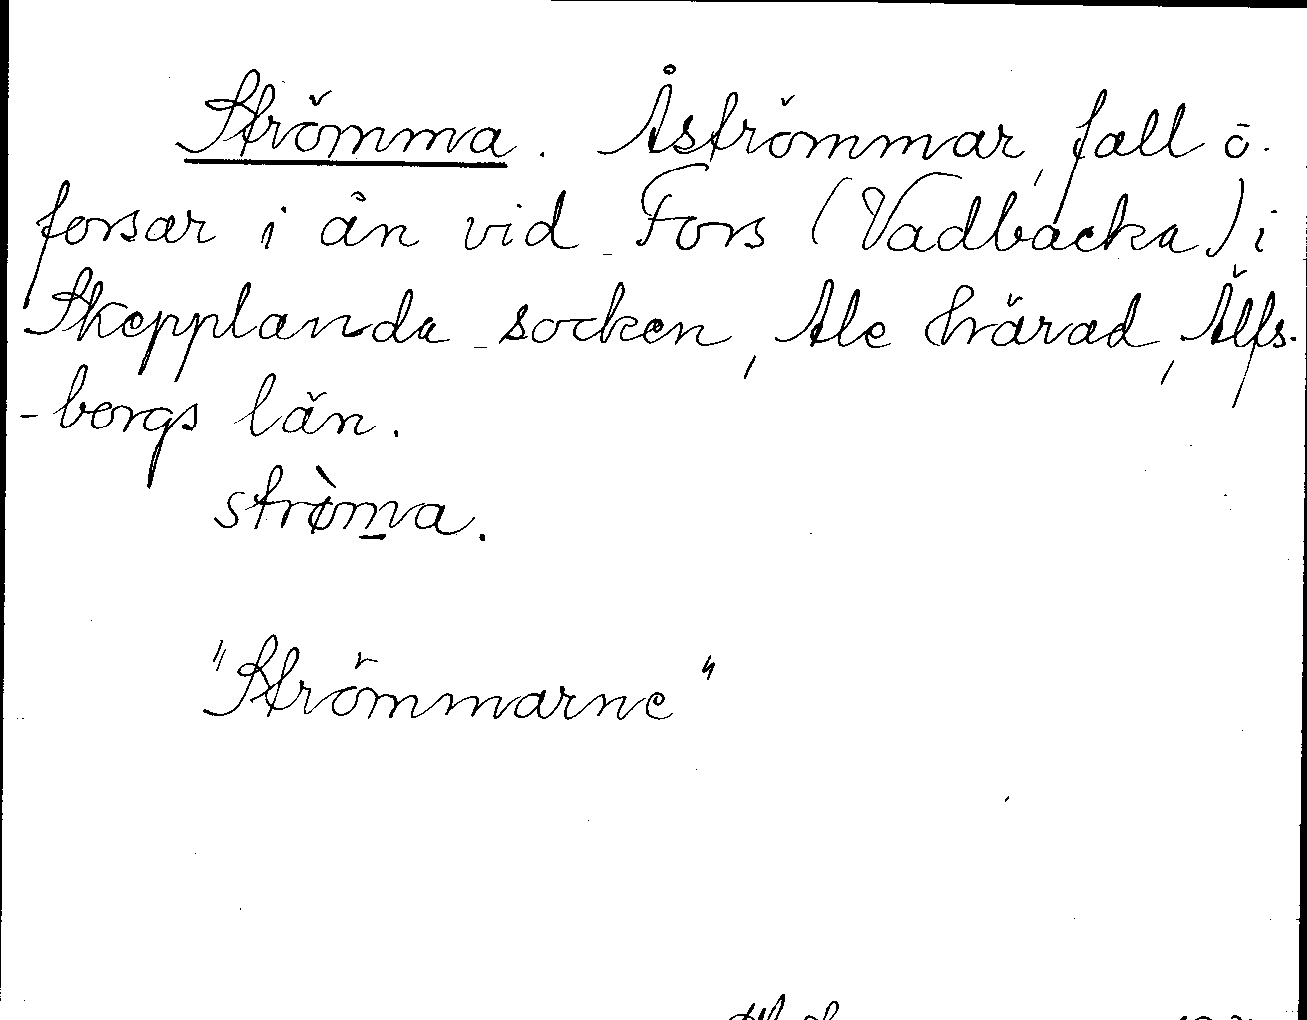 Strömma. Åströmmar, fall ö.
forsar i ån vid Fors (Vadbacka) i
Skepplanda socken, Ale härad, Älfs-
-borgs län.
strø̀m̲a.
"Strömmarne"